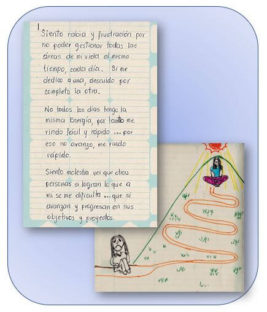 Siento rabia y frustración por
no poder gestionar todas las
áreas de mi vida al mismo
tiempo, cada día... Si me
dedico a una, descuido por
completo la otra.
No todos los días tengo la
misma Energía, por tanto me
rindo fácil y rápido ... por
eso no avanzo, me rindo
rápido.
Siento molestia ver que otras
personas si logran lo que a
mi se me dificulta ... que si
avanzan y progresan en sus
objetivos y proyectos.